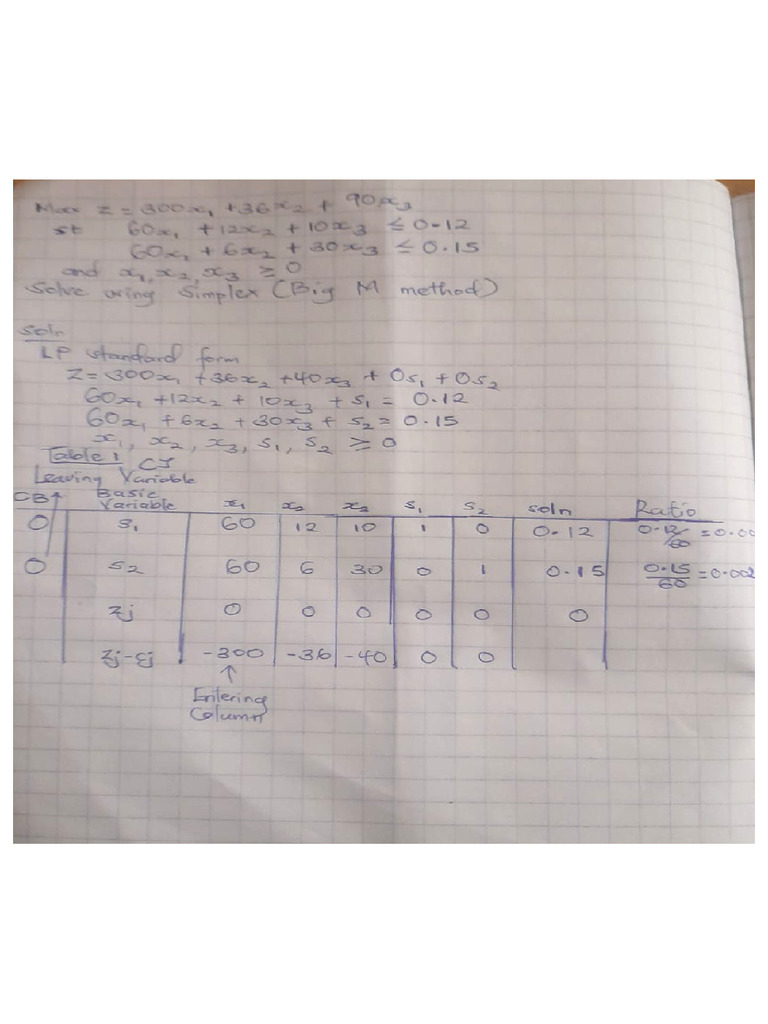 Max Z = 300x₁ + 36x₂ + 90x₃
st 60x₁ + 12x₂ + 10x₃ ≤ 0.12
60x₁ + 6x₂ + 30x₃ ≤ 0.15
and x₁, x₂, x₃ ≥ 0
Solve using Simplex (Big M method)
Soln
LP standard form
Z = 300x₁ + 36x₂ + 40x₃ + 0s₁ + 0s₂
60x₁ + 12x₂ + 10x₃ + s₁ = 0.12
60x₁ + 6x₂ + 30x₃ + s₂ = 0.15
x₁, x₂, x₃, s₁, s₂ ≥ 0
Table 1 CJ
Leaving Variable
CB↑ Basic Variable x₁ x₂ x₃ s₁ s₂ soln Ratio
0 s₁ 60 12 10 1 0 0.12 0.12/60 = 0.00
0 s₂ 60 6 30 0 1 0.15 0.15/60 = 0.002
Zj 0 0 0 0 0 0
Zj-Cj -300 -36 -40 0 0
↑
Entering
Column